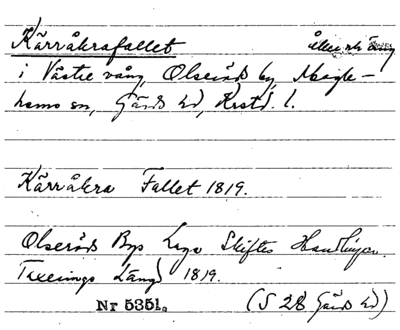 Kärråkrafallet åker och äng
i Västre vång, Olseröds by, Magle-
hems sn, Gärds hd, Krstd. l.
Kärråkra Fallet 1819.
Olseröds Bys Laga Skiftes Handlingar.
Taxerings Längd 1819.
Nr 5351. (S 28 Gärds hd)